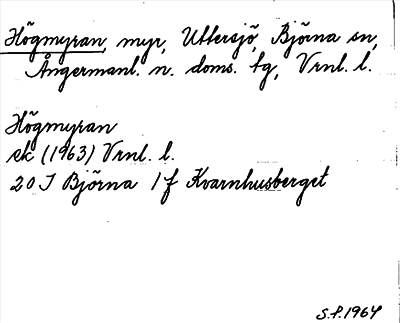 Högmyran, myr, Uttersjö, Björna sn,
Ångermanl. n. doms. tg, Vrnl. l.
Högmyran
ek (1963) Vrnl. l.
20 J Björna 1 f Kvarnhusberget
S.P. 1964